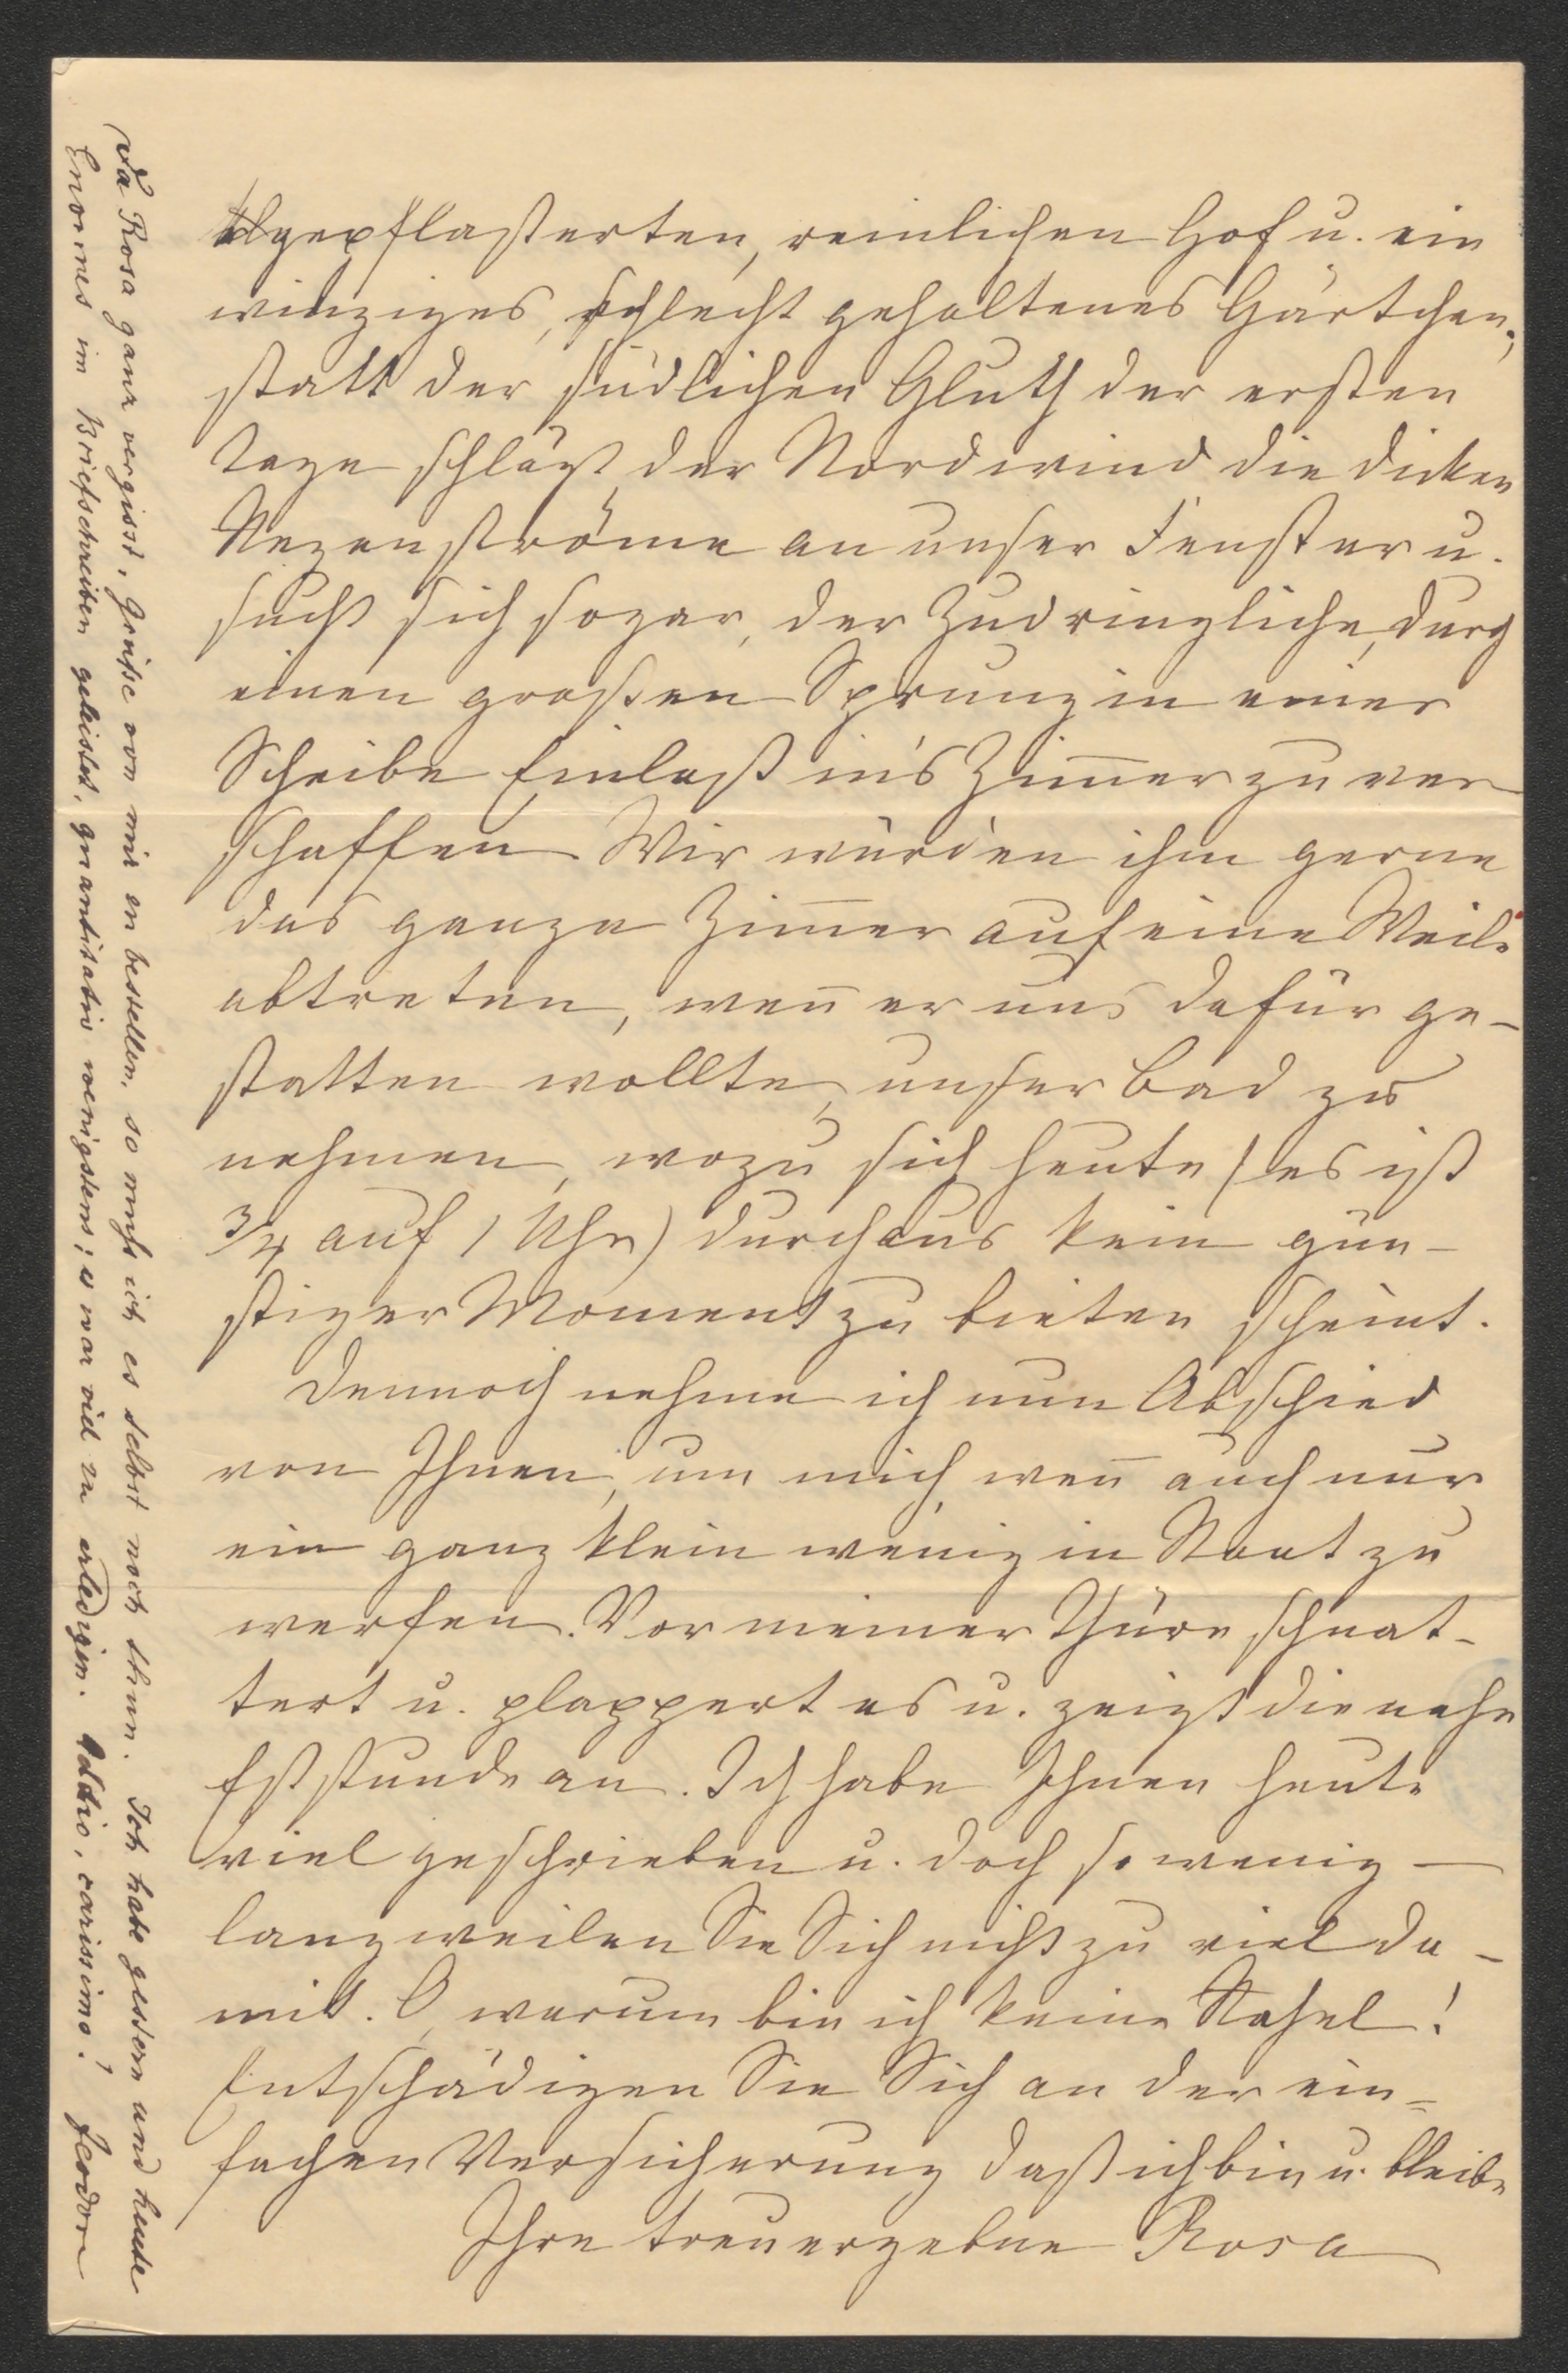 gepflasterten, reinlichen Hof u. ein
winziges, schlecht gehaltenes Gärtchen;
statt der südlichen Gluth der ersten
Tage schlägt der Nordwind die dicken
Regenströme an unser Fenster u.
sucht sich sogar, der Zudringliche, durch
einen großen Sprung in einer
Scheibe Einlaß in's Zim̅er zu ver
schaffen. Wir würden ihm gerne
das ganze Zim̅er auf eine Weile
abtreten, wen̅ er uns dafür ge-
statten wollte, unser Bad zu
nehmen, wozu sich heute (es ist
3/4 auf 1 Uhr) durchaus kein gün-
stiger Moment zu bieten scheint.
Dennoch nehme ich nun Abschied
von Ihnen, um mich, wen̅ auch nur
ein ganz klein wenig in Staat zu
werfen. Vor meiner Thüre schnat-
tert u. plappert es u. zeigt die nahe
Eßstunde an. Ich habe Ihnen heute
viel geschrieben u. doch so wenig —
langweilen Sie Sich nicht zu viel da-
mit. O, warum bin ich keine Rahel!
Entschädigen Sie Sich an der ein=
fachen Versicherung daß ich bin u. bleibe
Ihre treuergebne Rosa
Da Rosa ganz vergisst, Grüsse von mir zu bestellen, so muss ich es selbst noch thun. Ich habe gestern und heute
Enormes im Briefschreiben geleistet, quantitativ wenigstens; es war viel zu erledigen. Addio, carissimo!